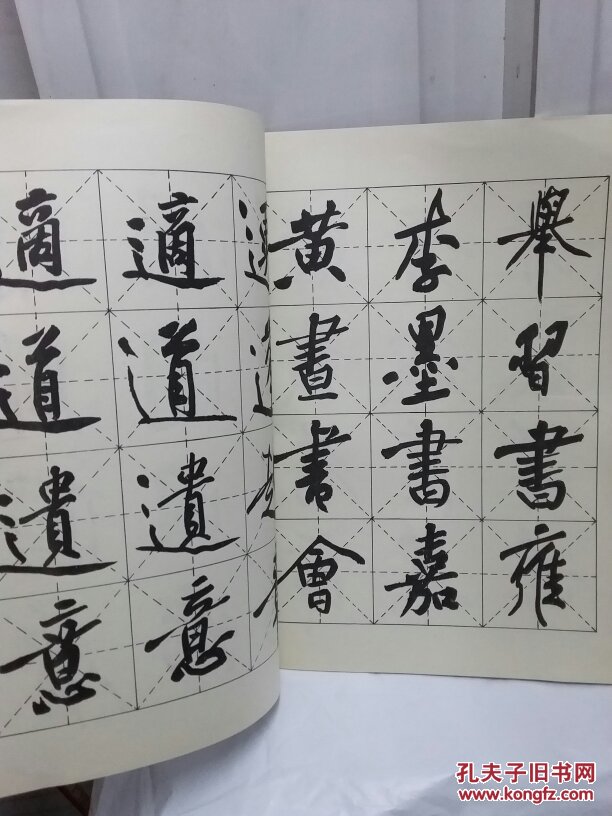 舉習書雍
李墨書嘉
黄晝書會
適道遺意
適道遺意
孔夫子旧书网
www.kongfz.com